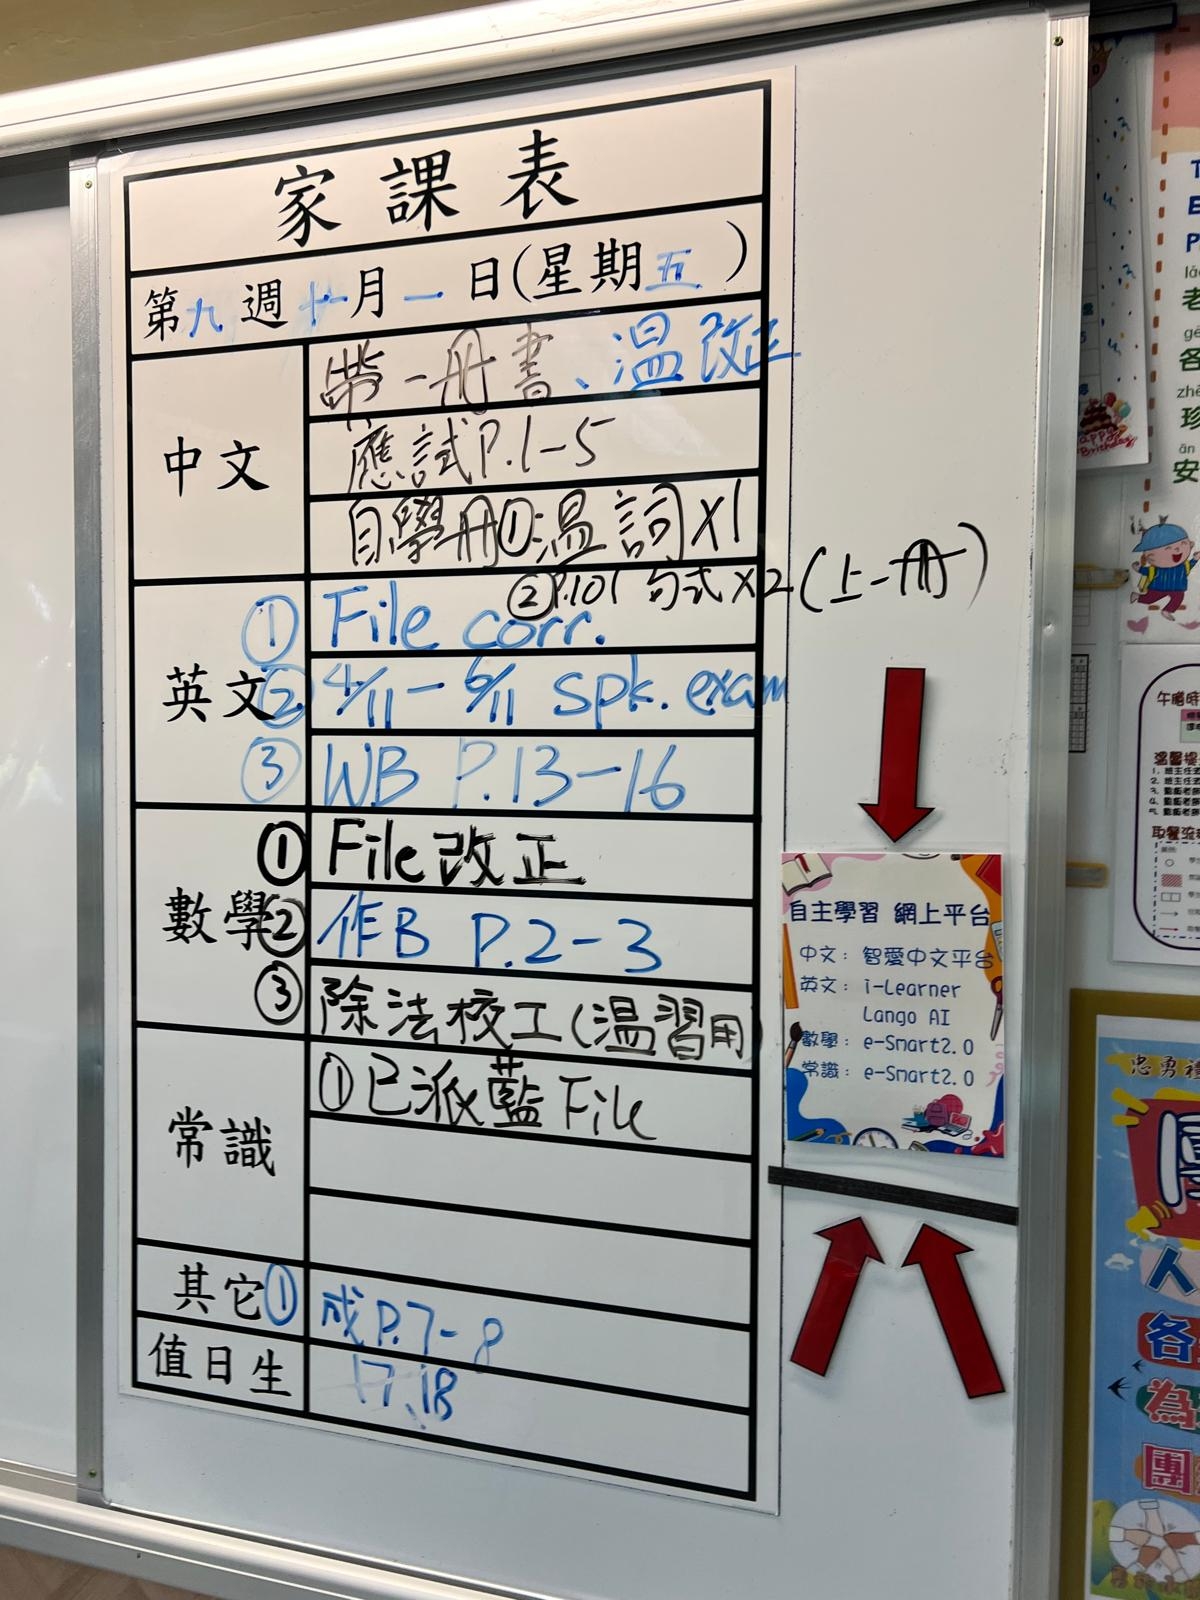 家課表
第九週十一月一日(星期五)
中文
帶一冊書、溫改正
應試P.1-5
自學冊①溫詞X1
②P.101 句式X2(上一冊)
英文
① File corr.
② 4/11-6/11 spk. exam
③ WB P.13-16
數學
① File改正
② 作B P.2-3
③ 除法校工(溫習用)
常識
①已派藍File
其它
① 成P.7-8
值日生
17、18
自主學習 網上平台
中文: 智愛中文平台
英文: i-Learner
Lango AI
數學: e-Smart2.0
常識: e-Smart2.0
Happy
Birthday
老
各
珍
安
午膳時
取餐流
忠勇
團
人
各
為
團